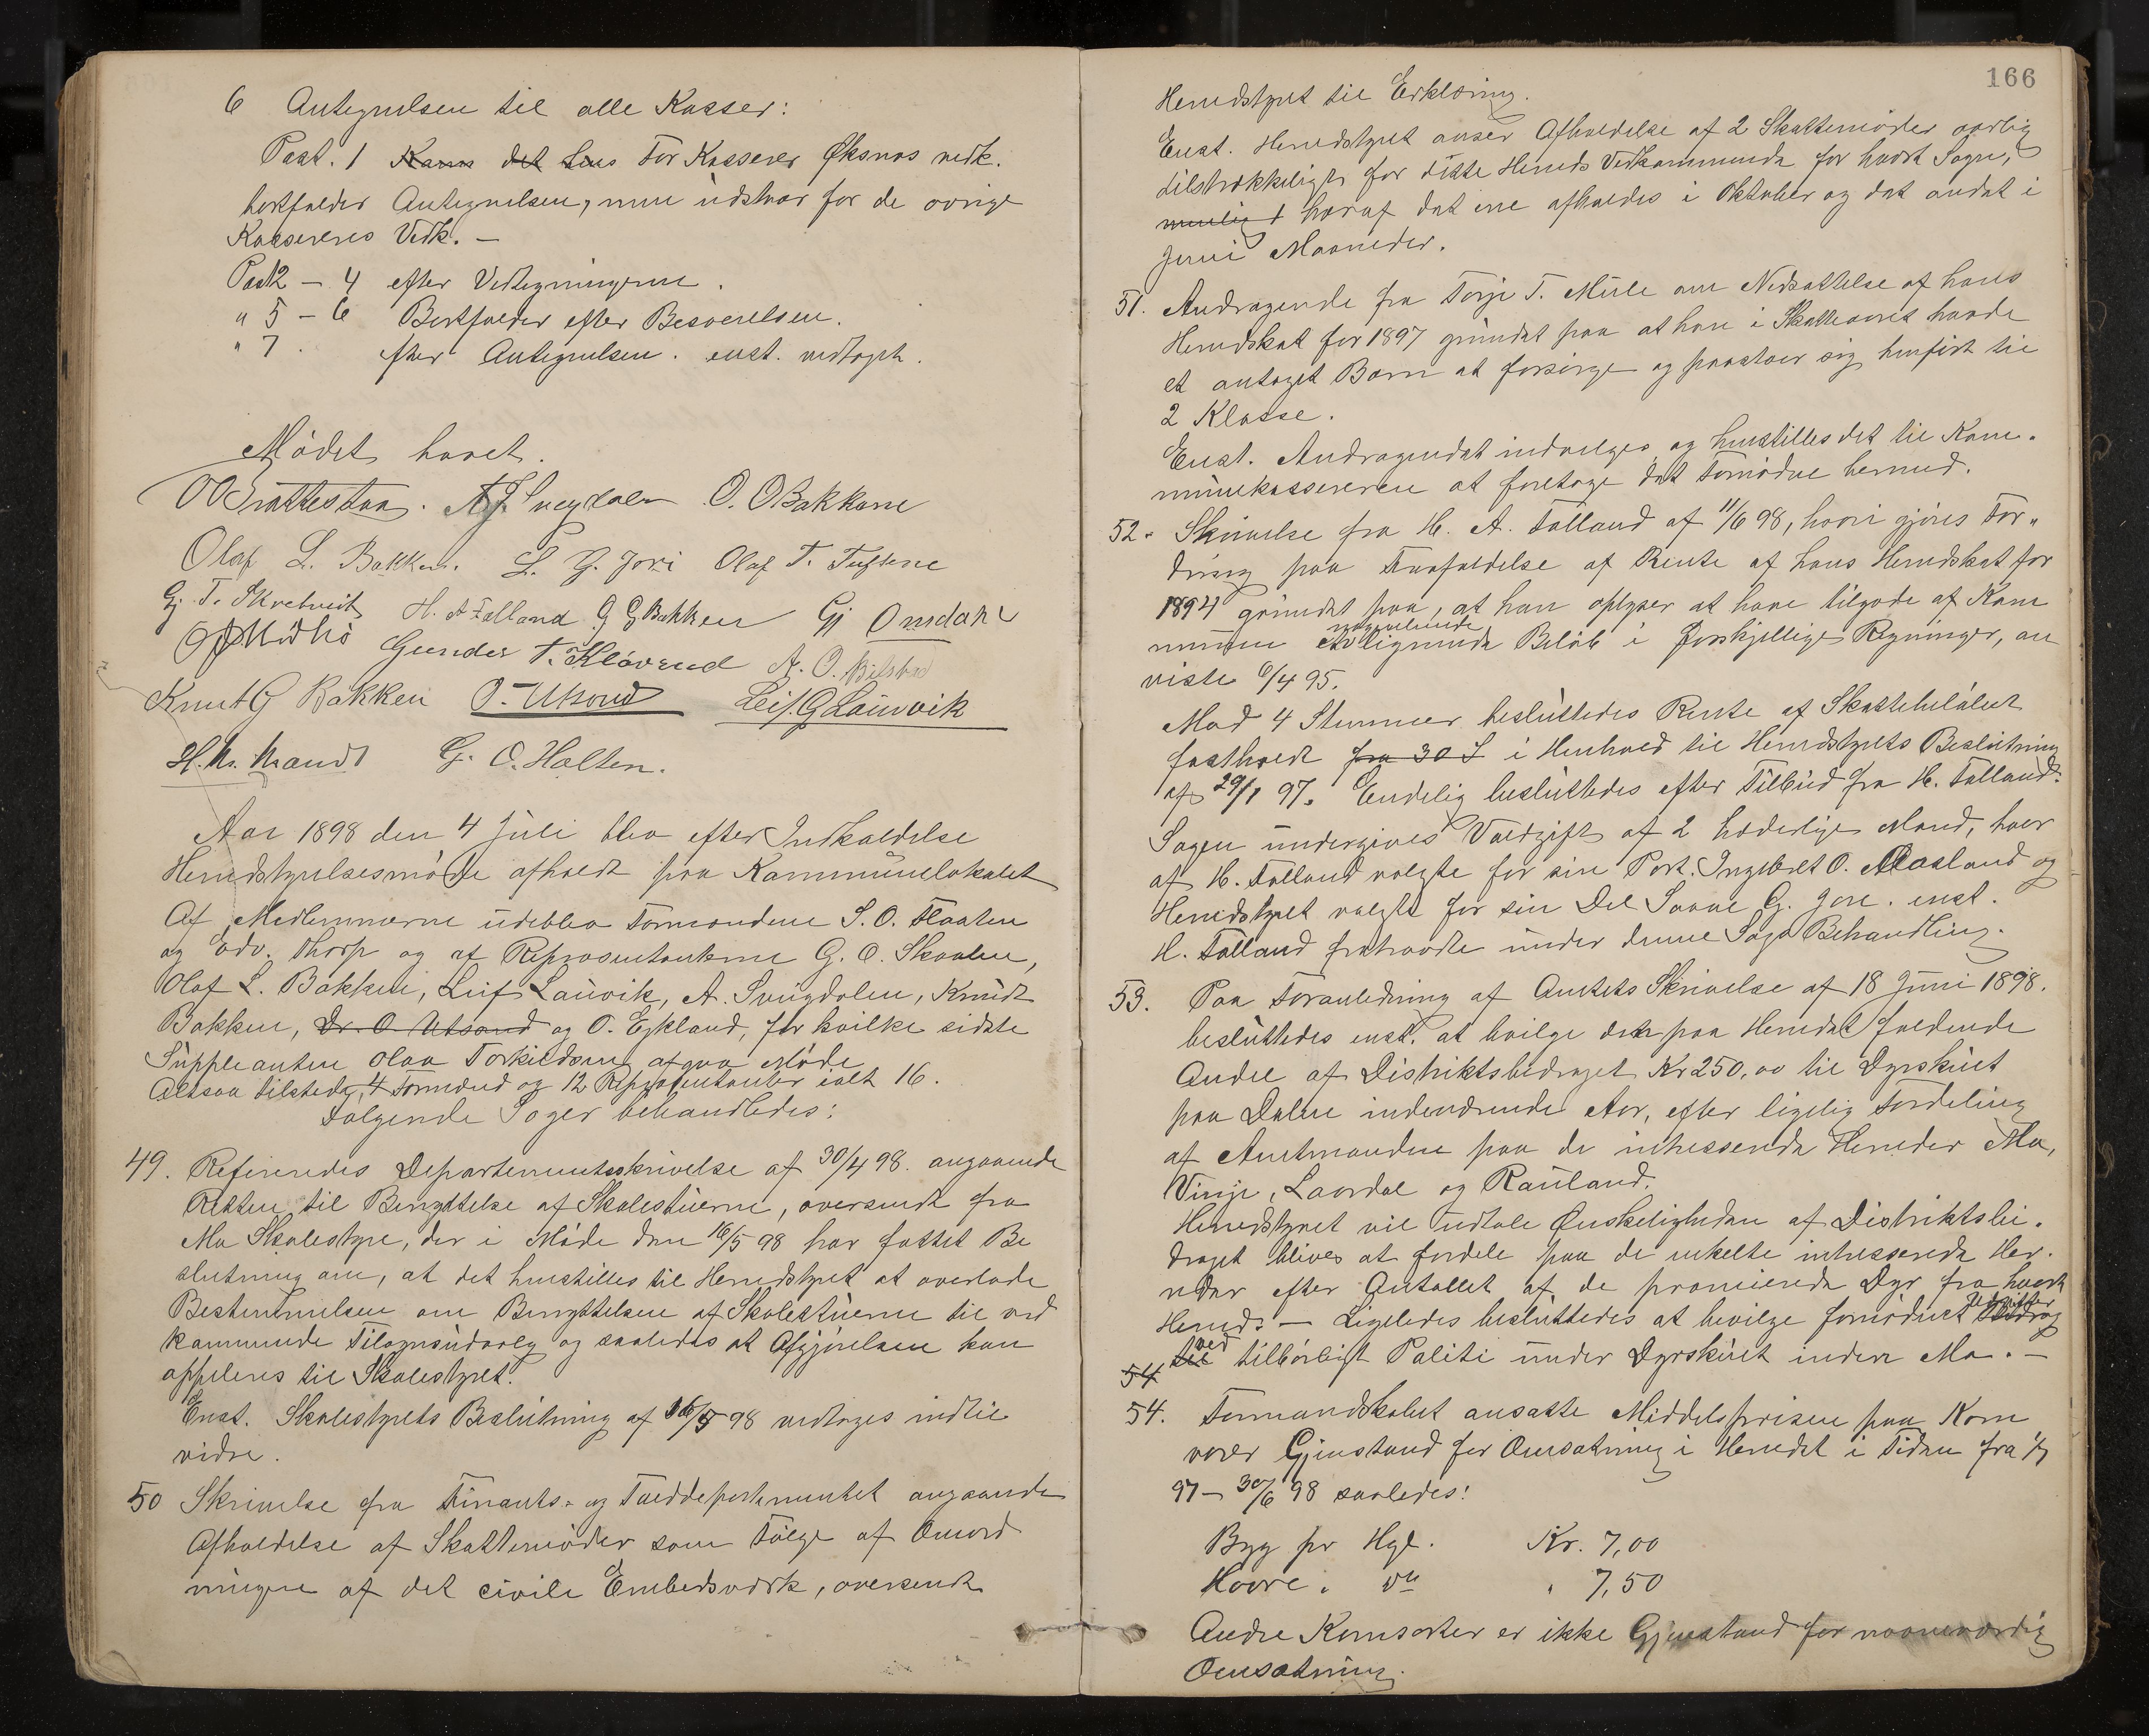 6 Antegnelsen til alle Kasser:
Post. 1 Kann det hens For Kasserer Øksnes vedk.
bortfalder Antegnelsen, men udstaar for de øvrige
Kassereres Vedk. —
Post 2 — 4 efter Vedtegningerne.
" 5 — 6 Bortfalder efter Besvarelsen.
" 7. efter Antegnelsen. enst. vedtaget.
Mødet hævet.
O. O. Bakkane
Olaf L. Bakken. S. G. Jore Olaf T. Tuftene
G. T. Skretveit H. A Falland G G Bakken Gj Omdahl
Gunder T. Kløvrud A. O.
Knut G Bakken O. Utsond Leif. G Lauvik
H. M. Mandt G. O. Holten.
Aar 1898 den 4 Juli blev efter Indkaldelse
Herredstyrelsesmøde afholdt paa Kommunelokalet
Af Medlemmerne udeblev Formændene S. O. Flaaten
og Edv. Thorp og af Repræsentanterne G. O. Skaalen,
Olaf L. Bakken, Leif Lauvik, A. Svingdalen, Knudt
Bakken, Dr. O Utsond og O. Eikland, for hvilke sidste
Suppleanten Olav Torkildsen afgav Møde
Altsaa tilstede, 4 Formænd og 12 Repræsentanter ialt 16.
Følgende Sager behandledes:
49. Refereredes Departementsskrivelse af 30/4 98. angaaende
Retten til Benyttelse af Skolestuerne, oversendt fra
Mo Skolestyre, der i Møde den 16/5 98 har fattet Be
slutning om, at det henstilles til Herredstyret at overlade
Bestemmelsen om Benyttelsen af Skolestuerne til ved
kommende Tilsynsudvalg og saaledes at Afgjørelsen kan
appeleres til Skolestyret.
Enst. Skolestyrets Beslutning af 16/5 98 vedtages indtil
videre.
50 Skrivelse fra Finants- og Tolddepartementet angaaende
Afholdelse af Skattemøder som Følge af Omord
ningen af det civile Embedsværk, oversendt
166
Herredstyret til Erklæring.
Enst. Herredstyret anser Afholdelse af 2 Skattemøder aarlig
tilstrækkeligt for dette Herreds Vedkommende for hvert Sogn,
nemlig 1 hvoraf det ene afholdes i Oktober og det andet i
Juni Maaneder.
51. Andragende fra Torje T. Mule om Nedsættelse af hans
Herredskat for 1897 grundet paa at han i Skatteaaret havde
et antaget Barn at forsørge og paastaar sig henført til
2 Klasse.
Enst. Andragendet indvilges og henstilles det til Kom-
munekassereren at foretage det Fornødne hermed.
52. Skrivelse fra H. A. Falland af 11/6 98, hvori gjøres For-
dring paa Frafaldelse af Rente af hans Herredskat for
1894 grundet paa, at han oplyser at have tilgode af Kom
munen nogenlunde tilsvarende Beløb i forskjellige Regninger, an
viste 6/4 95.
Mod 4 Stemmer besluttedes Rente af Skattebeløbet
fastholdt fra 30 S i Henhold til Herredstyrets Beslutning
af 29/1 97. Endelig besluttedes efter Tilbud fra H. Falland:
Sagen undergives Voldgift af 2 hæderlige Mænd, hvor
af H. Falland valgte for sin Part. Ingebret O. Aasland og
Herredstyret valgte for sin Del Saave G. Jore. enst.
H. Falland fratraadte under denne Sags Behandling.
53. Paa Foranledning af Amtets Skrivelse af 18 Juni 1898.
besluttedes enst. at bevilge den paa Herredet faldende
Andel af Distriktsbidraget Kr 250,00 til Dyrskuet
paa Dalen indeværende Aar, efter ligelig Fordeling
af Amtmanden paa de interesserede Herreder Mo,
Vinje, Laardal og Rauland.
Herredstyret vil udtale Ønskeligheden af Distriktsbi-
draget blives at fordele paa de enkelte interesserede Her-
reder efter Antallet af de præmierede Dyr fra hvert
Herred: — Ligeledes besluttedes at bevilge fornødent Bidrag Udgifter
til ved tilbørligt Politi under Dyrskuet inden Mo. —
54
54. Formandskabet ansatte Middelsprisen paa Korn
varer Gjenstand for Omsætning i Herredet i Tiden fra 1/7
97 — 30/6 98 saaledes:
Byg pr Hgl. Kr. 7,00
Havre. do " 7,50
Andre Kornsorter er ikke Gjenstand for nævneværdig
Omsætning.